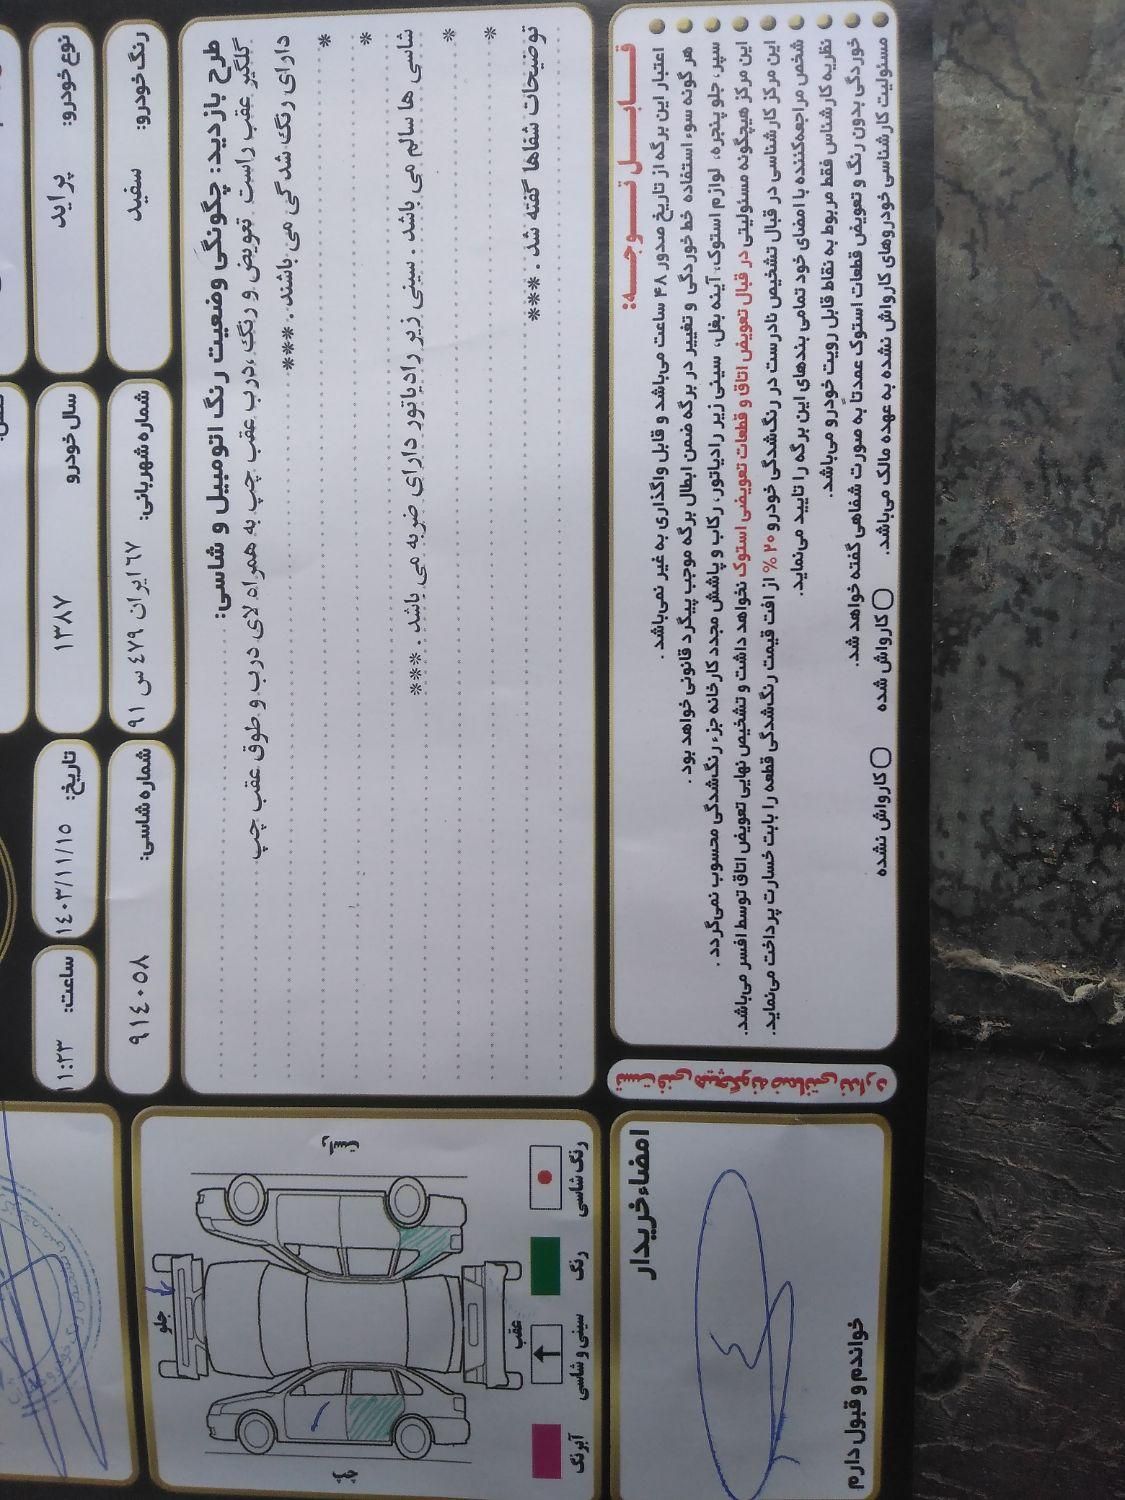 رنگ خودرو: سفید
شماره شهربانی: ٦٧ ایران ٤٧٩ س ٩١
شماره شاسی: ٩١٤٠٥٨
نوع خودرو: پراید
سال خودرو ١٣٨٧
تاریخ: ١٤٠٣/١١/١٥
ساعت: ١١:٢٣
طرح بازدید: چگونگی وضعیت رنگ اتومبیل و شاسی:
گلگیر عقب راست تعویض و رنگ ،درب عقب چپ به همراه لای درب و طوق عقب چپ
دارای رنگ شدگی می باشند . ***
*
*
شاسی ها سالم می باشد . سینی زیر رادیاتور دارای ضربه می باشد . ***
*
*
توضیحات شفاها گفته شد . ***
قابل توجه:
اعتبار این برگه از تاریخ صدور ۴۸ ساعت می‌باشد و قابل واگذاری به غیر نمی‌باشد .
هر گونه سوء استفاده خط خوردگی و تغییر در برگه ضمن ابطال برگه موجب پیگرد قانونی خواهد بود .
سپر، جلو پنجره، لوازم استوک، آینه بغل، سینی زیر رادیاتور، رکاب و پاشش مجدد کارخانه جزء رنگ‌شدگی محسوب نمی‌گردد .
این مرکز هیچگونه مسئولیتی در قبال تعویض اتاق و قطعات تعویضی استوک نخواهد داشت و تشخیص نهایی تعویض اتاق توسط افسر می‌باشد.
این مرکز کارشناسی در قبال تشخیص نادرست در رنگ‌شدگی خودرو ۲۰ % از افت قیمت رنگ‌شدگی قطعه را بابت خسارت پرداخت می‌نماید.
شخص مراجعه‌کننده با امضای خود تمامی بندهای این برگه را تایید می‌نماید.
نظریه کارشناس فقط مربوط به نقاط قابل رویت خودرو می‌باشد.
خوردگی بدون رنگ و تعویض قطعات استوک عمدتاً به صورت شفاهی گفته خواهد شد.
مسئولیت کارشناسی خودروهای کارواش نشده به عهده مالک می‌باشد.
کارواش شده
کارواش نشده
تست فنی هیچگونه ضمانتی ندارد
جلو
عقب
راست
چپ
رنگ شاسی
رنگ
سینی و شاسی
آبرنگ
امضاء خریدار
خواندم و قبول دارم